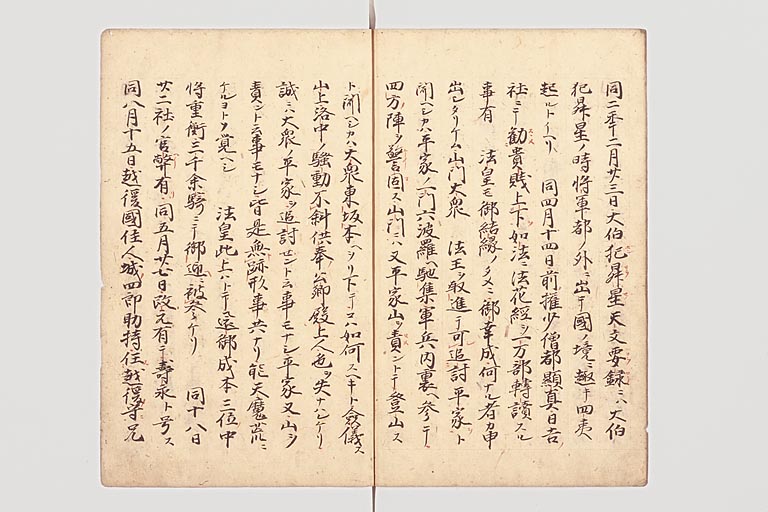 同二年二月廿三日大伯犯昴星天文要録ニハ大伯
犯昴星ノ時将軍都ノ外ニ出テ國ノ境ニ趣テ四夷
起ルトイヘリ 同四月十四日前權少僧都顯真日吉
社ニテ勧貴賤上下如法ニ法花経ヲ一万部轉讀スル
事有 法皇モ御結縁ノタメニ御幸成何ナル者カ申
出シタリケム山門大衆 法王ヲ取進テ可追討平家ト
聞ヘシカハ平家ノ一門六波羅ヘ馳集軍兵内裏ヘ参テ
四方陣ヲ警固ス山門ニハ又平家山ヲ責ントテ登山ス
ト聞ヘシカハ大衆東坂本ヘヲリ下テコハ如何スヘキト僉儀ス
山上洛中ノ騒動不斜供奉公卿殿上人色ヲ失ナハレケリ
誠ニハ大衆ノ平家ヲ追討セント云事モナシ平家又山ヲ
責ント云事モナシ皆是無跡形事共ナリ能天魔荒ニ
ケルヨトソ覚ヘシ 法皇此上ハトテ還御成本三位中
将重衡三千余騎ニテ御迎ニ被参ケリ 同十八日
廿二社ノ官幣有同五月廿七日改元有テ壽永ト号ス
同八月十五日越後國住人城四郎助持任越後守兄